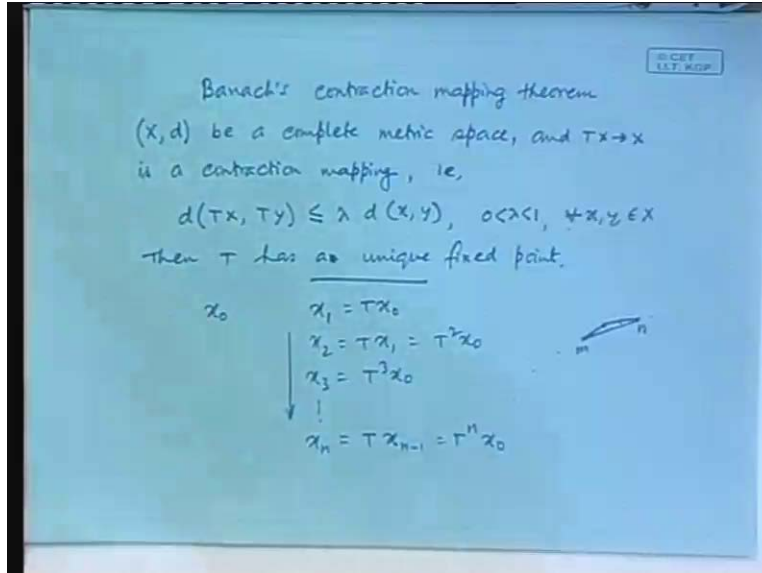 © CET
I.I.T. KGP
Banach's contraction mapping theorem
(X, d) be a complete metric space, and T X → X
is a contraction mapping, ie,
d(Tx, Ty) ≤ λ d(x, y), 0<λ<1, ∀ x, y ∈ X
Then T has a unique fixed point.
x₀ x₁ = Tx₀
x₂ = Tx₁ = T²x₀
x₃ = T³x₀
⋮
xₙ = T xₙ₋₁ = Tⁿ x₀
m n